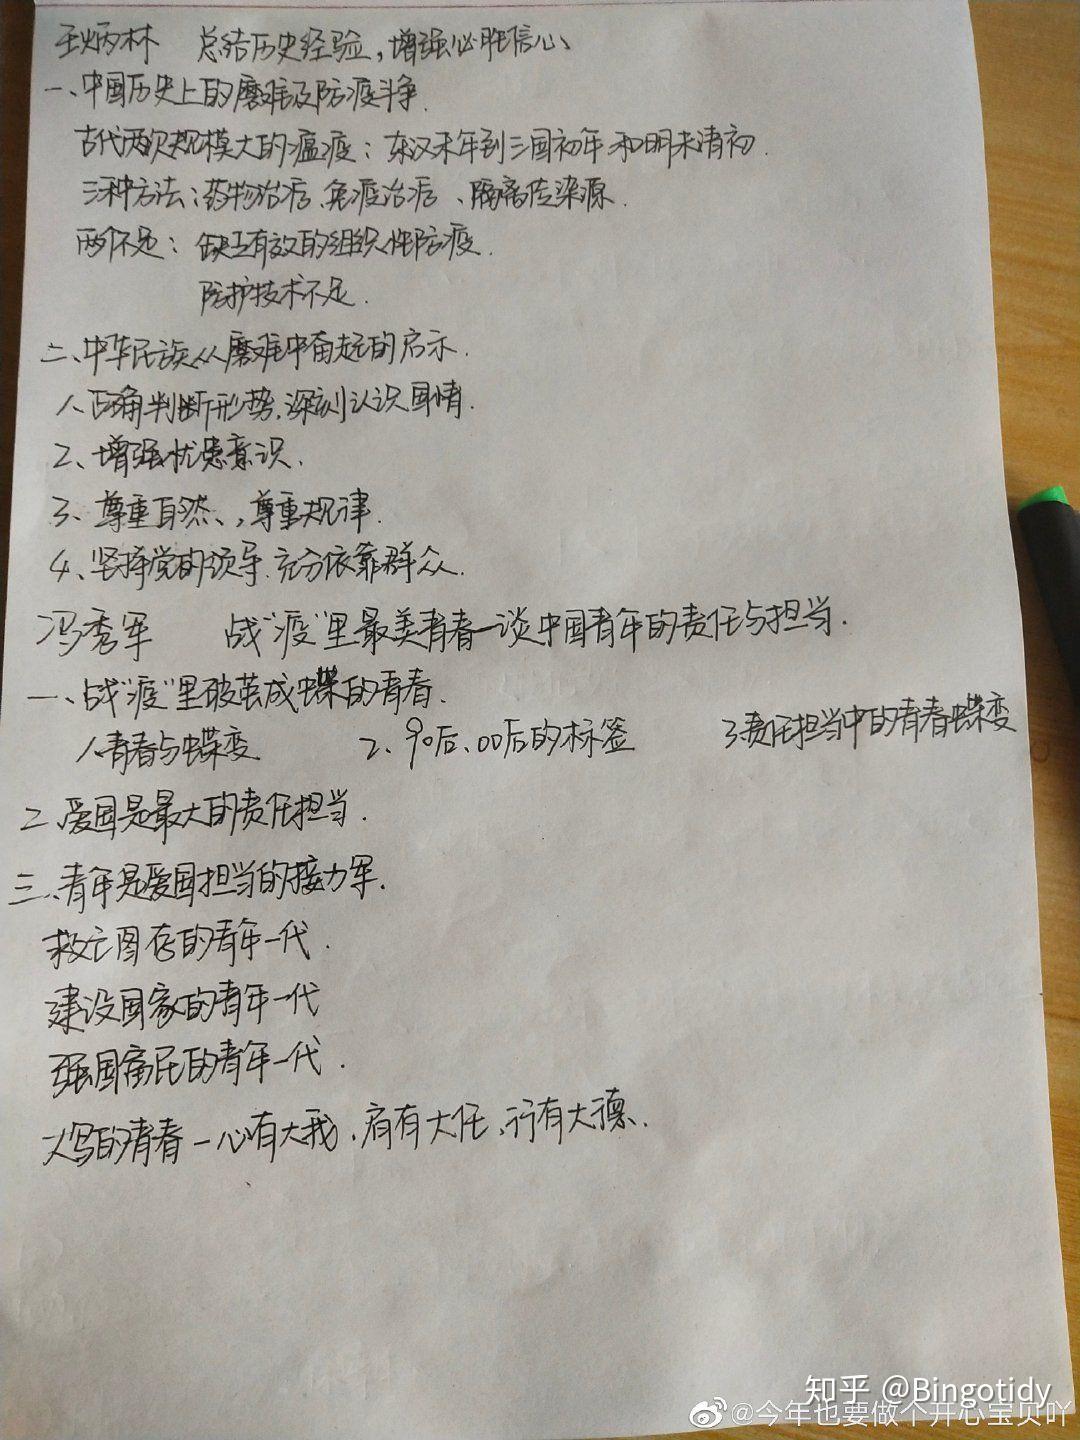 王炳林 总结历史经验,增强必胜信心、
一、中国历史上的磨难及防疫斗争.
古代两次规模大的瘟疫:东汉末年到三国初年和明末清初.
三种方法:药物治病、免疫治病、隔离传染源.
两个不足:缺乏有效的组织性防疫.
防护技术不足.
二、中华民族从磨难中奋起的启示.
1、正确判断形势,深刻认识国情.
2、增强忧患意识.
3、尊重自然、,尊重规律.
4、坚持党的领导.充分依靠群众.
冯秀军 战“疫”里最美青春—谈中国青年的责任与担当.
一、战“疫”里破茧成蝶的青春.
1、青春与蝶变 2、90后、00后的标签 3.责任担当中的青春蝶变
二、爱国是最大的责任担当.
三、青年是爱国担当的接力军.
救亡图存的青年一代.
建设国家的青年一代
强国富民的青年一代.
大写的青春—心有大我、肩有大任、行有大德.
知乎 @Bingotidy
@今年也要做个开心宝贝吖